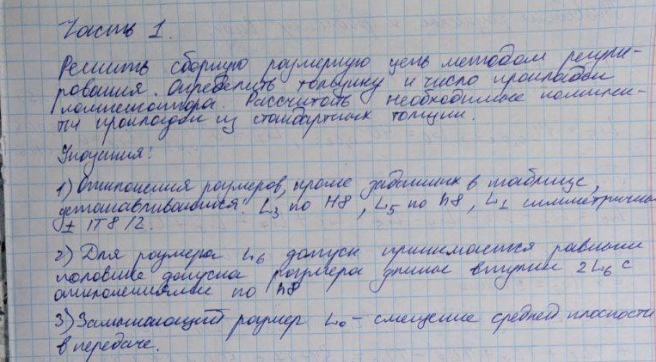 Часть 1.
Решить сборную размерную цепь методом регули-
рования. Определить толщину и число прокладок
компенсатора. Рассчитать необходимые комплек-
ты прокладок из стандартных толщин.
Указания:
1) Отклонения размеров, кроме заданных в таблице,
устанавливаются: L3 по H8, L5 по h8, L1 симметричны
± IT8/2.
2) Для размера L6 допуск принимается равным
половине допуска размера длины втулки 2L6 с
отклонениями по h8
3) Замыкающий размер L0 – смещение средней плоскости
в передаче.